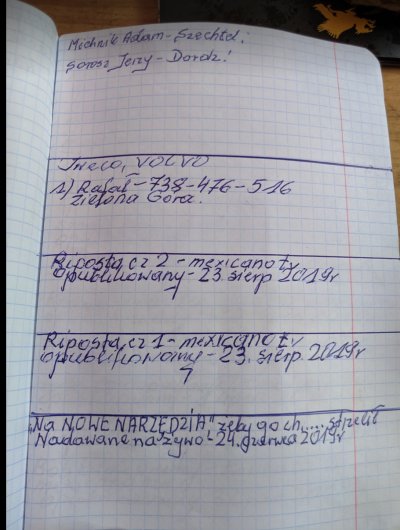 Michnik Adam - Szechid!
Soros Jerzy - Dordz!
Iveco, VOLVO
1) Rafał - 738-476-516
Zielona Góra.
Riposta cz 2 - mexicano tv
opublikowany - 23. sierp 2019r
Riposta cz 1 - mexicano tv
opublikowany - 23. sierp 2019r
"Na NOWE NARZĘDZIA" żeby go ch..... strzelił
Nadawane na żywo 24. czerwca 2019r